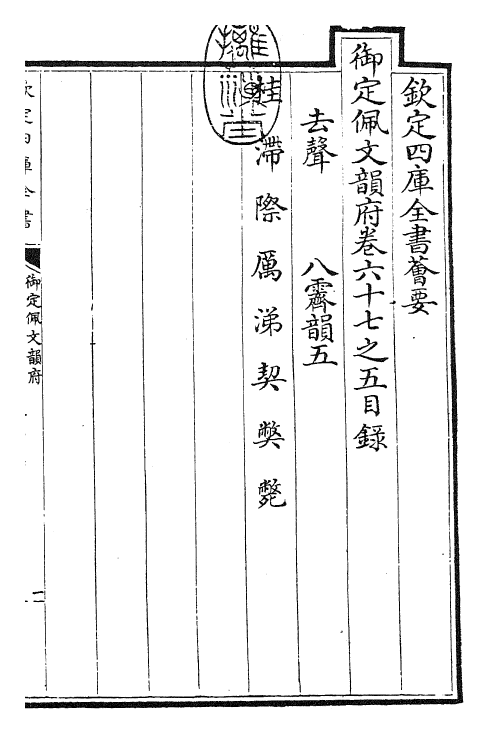 欽定四庫全書薈要
御定佩文韻府卷六十七之五目錄
去聲　八霽韻五
桂　滯　際　厲　涕　契　獘　斃
欽定四庫全書
御定佩文韻府